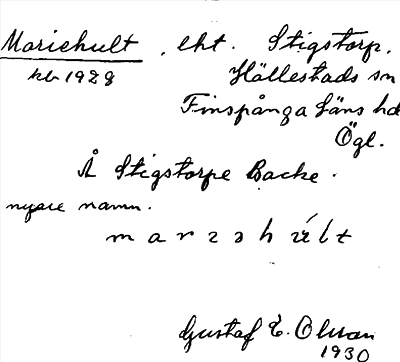 Mariehult, lht. Stigstorp.
kb 1928 Hällestads sn
Finspånga läns hd
Ögl.
Å Stigstorps Backe.
nyare namn.
marsahúlt
Gustaf E. Olsson
1930